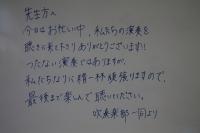 先生方へ
今日はお忙しい中、私たちの演奏を
聴きに来て下さりありがとうございます!!
つたない演奏ではありますが、
私たちなりに精一杯頑張りますので、
最後まで楽しんで聴いてください。
吹奏楽部一同より